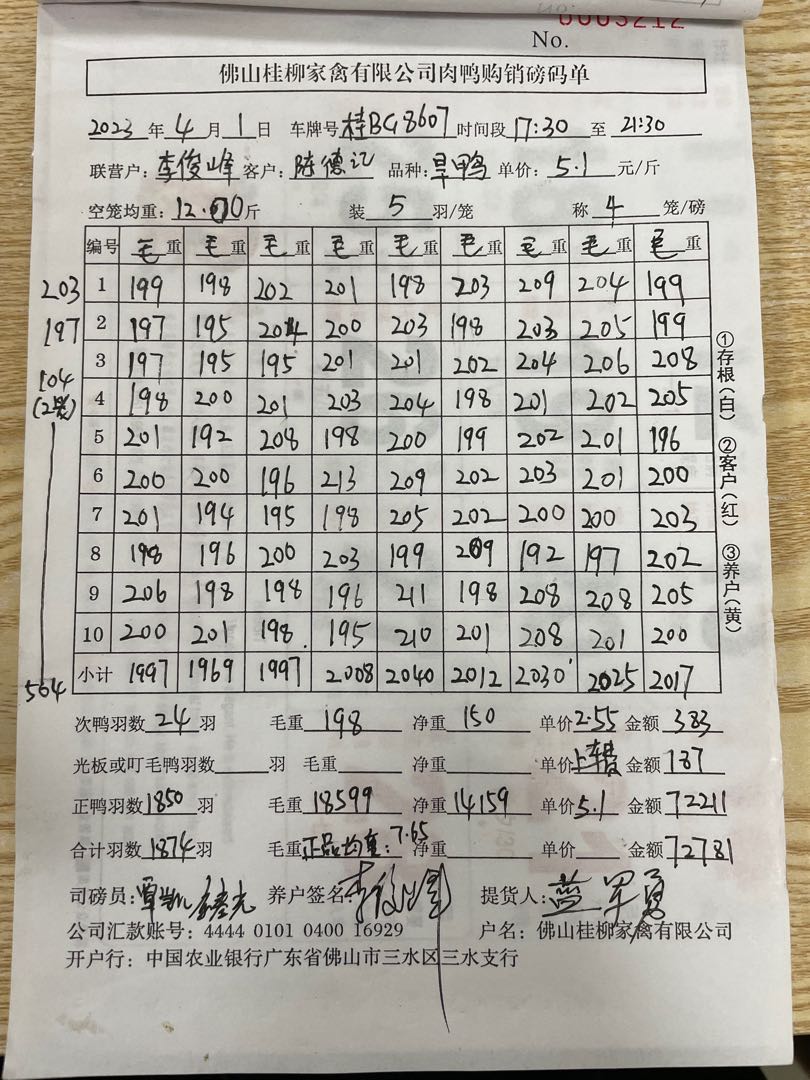 0003212
No.
佛山桂柳家禽有限公司肉鸭购销磅码单
2023 年 4 月 1 日 车牌号 桂BG8607 时间段 17:30 至 21:30
联营户: 李俊峰 客户: 陈德记 品种: 旱鸭 单价: 5.1 元/斤
空笼均重: 12.00 斤 装 5 羽/笼 称 4 笼/磅
编号 毛重 毛重 毛重 毛重 毛重 毛重 毛重 毛重 毛重
203 1 199 198 202 201 198 203 209 204 199
197 2 197 195 204 200 203 198 203 205 199
3 197 195 195 201 201 202 204 206 208
104
(2笼) 4 198 200 201 203 204 198 201 202 205
5 201 192 208 198 200 199 202 201 196
6 200 200 196 213 209 202 203 201 200
7 201 194 195 198 205 202 200 200 203
8 198 196 200 203 199 209 192 197 202
9 206 198 198 196 211 198 208 208 205
10 200 201 198 195 210 201 208 201 200
504 小计 1997 1969 1997 2008 2040 2012 2030 2025 2017
①存根(白) ②客户(红) ③养户(黄)
次鸭羽数 24 羽 毛重 198 净重 150 单价 2.55 金额 383
光板或叮毛鸭羽数 羽 毛重 净重 单价 上车费 金额 187
正鸭羽数 1850 羽 毛重 18599 净重 14159 单价 5.1 金额 72211
合计羽数 1874 羽 毛重 正品均重: 7.65 净重 单价 金额 72781
司磅员: 养户签名: 李俊峰 提货人: 蓝军勇
公司汇款账号: 4444 0101 0400 16929 户名: 佛山桂柳家禽有限公司
开户行: 中国农业银行广东省佛山市三水区三水支行